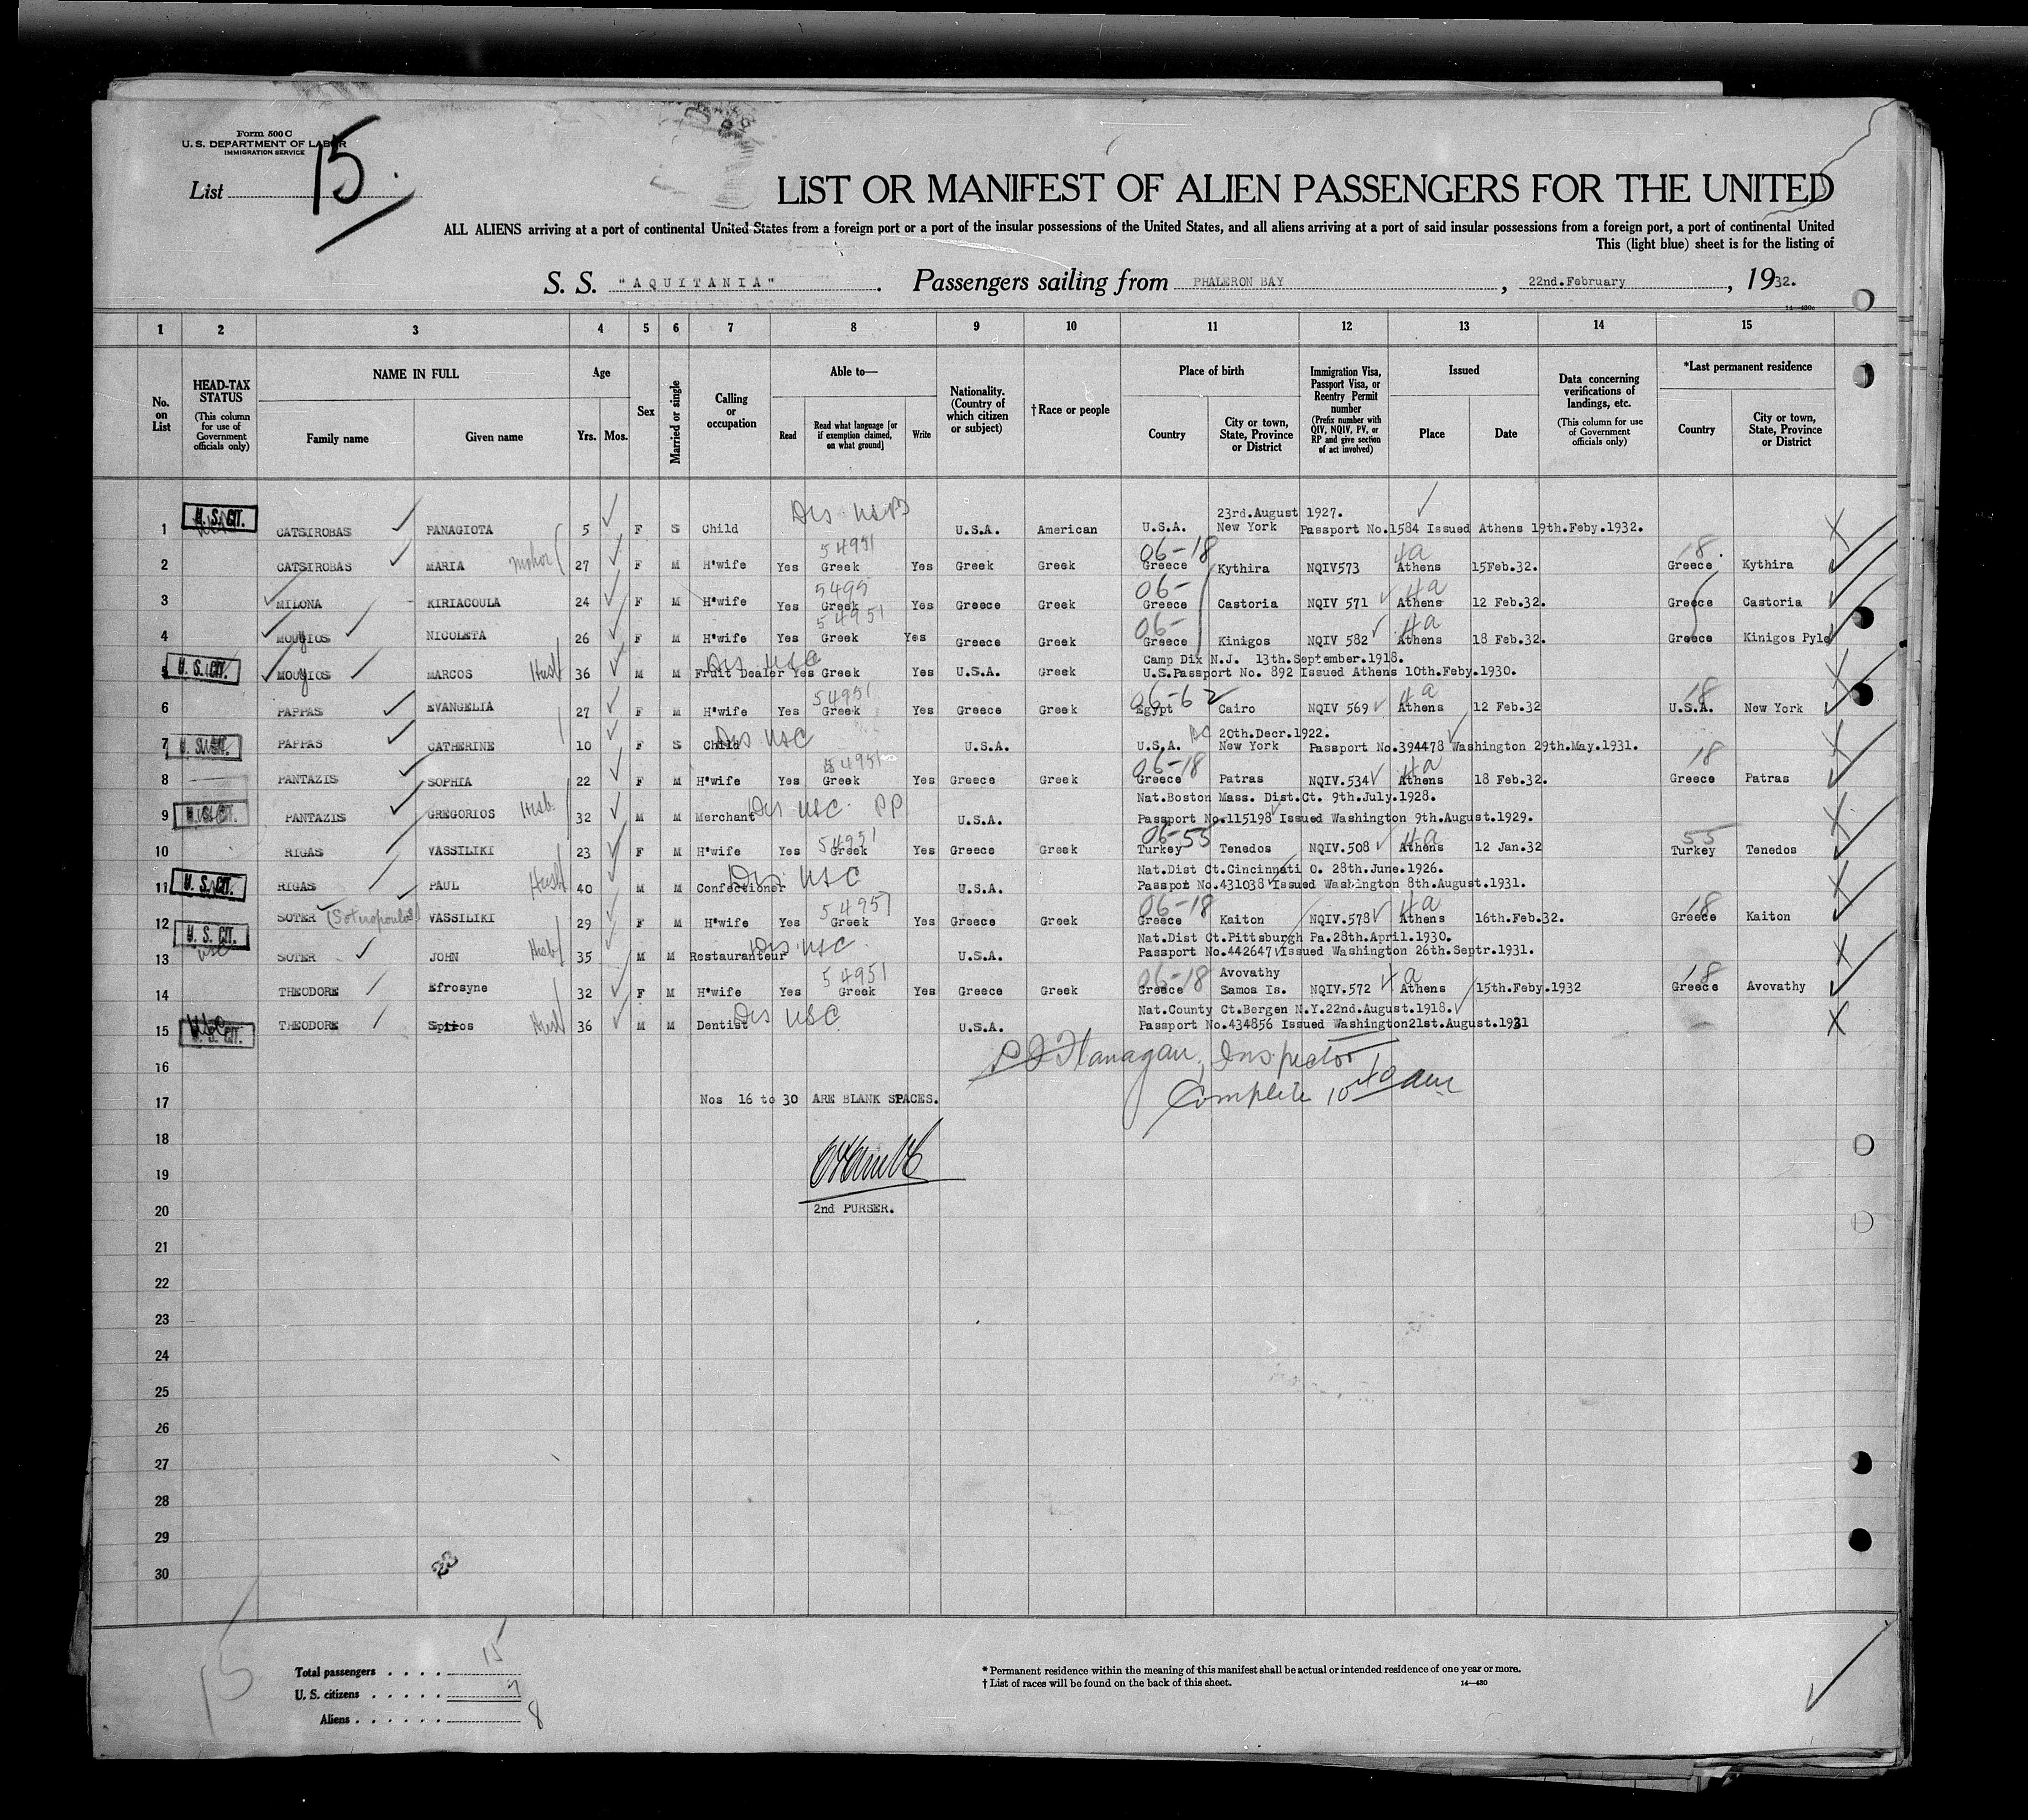 Form 500 C
U. S. DEPARTMENT OF LABOR
IMMIGRATION SERVICE
List 15.
LIST OR MANIFEST OF ALIEN PASSENGERS FOR THE UNITED
ALL ALIENS arriving at a port of continental United States from a foreign port or a port of the insular possessions of the United States, and all aliens arriving at a port of said insular possessions from a foreign port, a port of continental United
This (light blue) sheet is for the listing of
S. S. "AQUITANIA". Passengers sailing from PHALERON BAY, 22nd.February, 1932.
14—430c
1 2 3 4 5 6 7 8 9 10 11 12 13 14 15
No. on List
HEAD-TAX STATUS (This column for use of Government officials only)
NAME IN FULL Family name Given name
Age Yrs. Mos.
Sex
Married or single
Calling or occupation
Able to— Read Read what language [or if exemption claimed, on what ground] Write
Nationality. (Country of which citizen or subject)
†Race or people
Place of birth Country City or town, State, Province or District
Immigration Visa, Passport Visa, or Reentry Permit number (Prefix number with QIV, NQIV, PV, or RP and give section of act involved)
Issued Place Date
Data concerning verifications of landings, etc. (This column for use of Government officials only)
*Last permanent residence Country City or town, State, Province or District
U. S. CIT. Dis USPB 23rd.August 1927.
1 CATSIROBAS PANAGIOTA 5 F S Child U.S.A. American U.S.A. New York Passport No.1584 Issued Athens 19th.Feby.1932.
54951 06-18 4a 18
2 CATSIROBAS MARIA mother 27 F M H'wife Yes Greek Yes Greek Greek Greece Kythira NQIV573 Athens 15Feb.32. Greece Kythira
5495 06- 4a
3 MILONA KIRIACOULA 24 F M H'wife Yes Greek Yes Greece Greek Greece Castoria NQIV 571 Athens 12 Feb.32. Greece Castoria
54951 06- 4a
4 MOUGIOS NICOLETA 26 F M H'wife Yes Greek Yes Greece Greek Greece Kinigos NQIV 582 Athens 18 Feb.32. Greece Kinigos Pyle
U. S. CIT. Dis USC Camp Dix N.J. 13th.September.1918.
5 MOUGIOS MARCOS Husb 36 M M Fruit Dealer Yes Greek Yes U.S.A. Greek U.S.Passport No. 892 Issued Athens 10th.Feby.1930.
54951 06-62 4a 18
6 PAPPAS EVANGELIA 27 F M H'wife Yes Greek Yes Greece Greek Egypt Cairo NQIV 569 Athens 12 Feb.32 U.S.A. New York
U. S. CIT. Dis USC 20th.Decr.1922.
7 PAPPAS CATHERINE 10 F S Child U.S.A. U.S.A. New York Passport No.394478 Washington 29th.May.1931.
54951 06-18 4a 18
8 PANTAZIS SOPHIA 22 F M H'wife Yes Greek Yes Greece Greek Greece Patras NQIV.534 Athens 18 Feb.32. Greece Patras
U. S. CIT. Dis USC. PP Nat.Boston Mass. Dist.Ct. 9th.July.1928.
9 PANTAZIS GREGORIOS Husb. 32 M M Merchant U.S.A. Passport No.115198 Issued Washington 9th.August.1929.
54951 06-55 4a 55
10 RIGAS VASSILIKI 23 F M H'wife Yes Greek Yes Greece Greek Turkey Tenedos NQIV.508 Athens 12 Jan.32 Turkey Tenedos
U. S. CIT. Dis USC Nat.Dist Ct.Cincinnati O. 28th.June.1926.
11 RIGAS PAUL Husb 40 M M Confectioner U.S.A. Passport No.431038 Issued Washington 8th.August.1931.
54951 06-18 4a 18
12 SOTER (Soteropoulos) VASSILIKI 29 F M H'wife Yes Greek Yes Greece Greek Greece Kaiton NQIV.578 Athens 16th.Feb.32. Greece Kaiton
U. S. CIT. USC Dis. USC Nat.Dist Ct.Pittsburgh Pa.28th.April.1930.
13 SOTER JOHN Husb 35 M M Restauranteur U.S.A. Passport No.442647 Issued Washington 26th.Septr.1931.
54951 06-18 Avovathy 4a 18
14 THEODORE Efrosyne 32 F M H'wife Yes Greek Yes Greece Greek Greece Samos Is. NQIV.572 Athens 15th.Feby.1932 Greece Avovathy
USC U. S. CIT. Dis USC Nat.County Ct.Bergen N.Y.22nd.August.1918.
15 THEODORE Spiros Husb 36 M M Dentist U.S.A. Passport No.434856 Issued Washington21st.August.1931
P J Flanagan, Inspector
16
Complete 10 40 am
17 Nos 16 to 30 ARE BLANK SPACES.
18
19
20 2nd PURSER.
21
22
23
24
25
26
27
28
29
30
15
Total passengers . . . . 15
U. S. citizens . . . . . 7
Aliens . . . . . . 8
* Permanent residence within the meaning of this manifest shall be actual or intended residence of one year or more.
† List of races will be found on the back of this sheet. 14—430